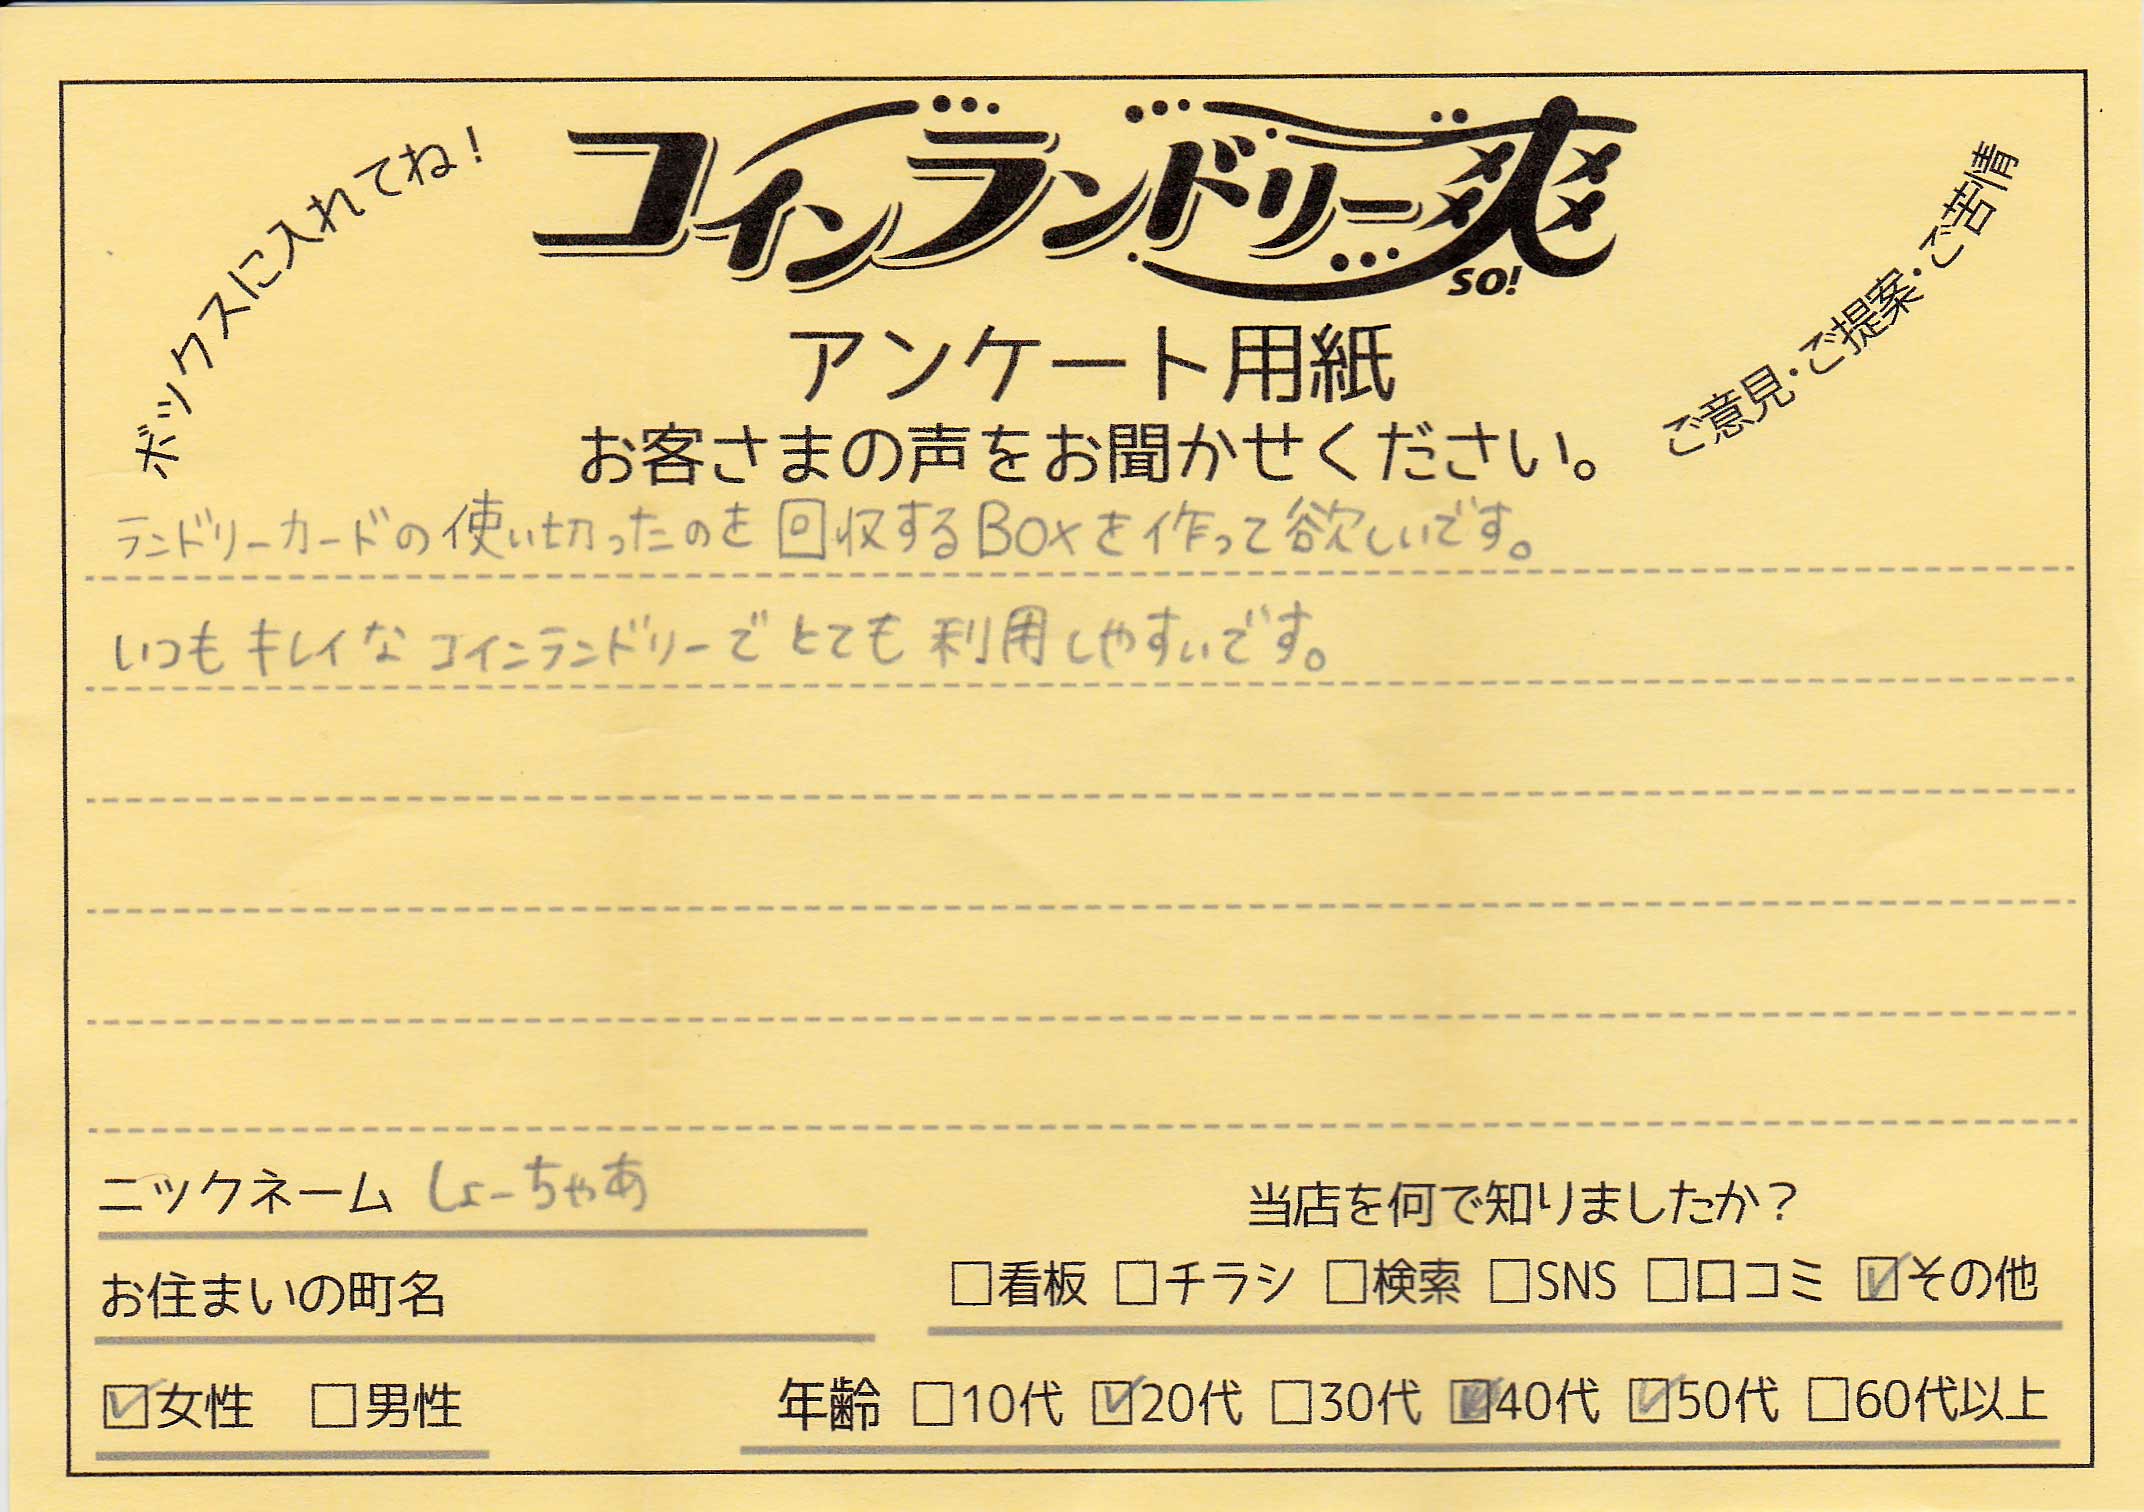 ボックスに入れてね！
コインランドリー爽
SO!
ご意見・ご提案・ご苦情
アンケート用紙
お客さまの声をお聞かせください。
ランドリーカードの使い切ったのを回収するBoxを作って欲しいです。
いつもキレイなコインランドリーでとても利用しやすいです。
ニックネーム しょーちゃあ
当店を何で知りましたか？
お住まいの町名
□看板 □チラシ □検索 □SNS □口コミ ☑その他
☑女性 □男性
年齢 □10代 ☑20代 □30代 ☑40代 ☑50代 □60代以上